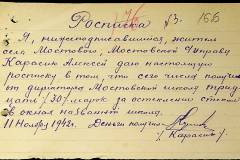 Росписка 76 §3. 166
Я, нижеподписавшийся, житель
села Мостовое, Мостовской Управы
Карасик Алексей даю настоящую
росписку в том, что сего числа получил
от директора Мостовской школы трид-
цать /30/ марок за остекление стекол
в окнах названной школы.
11 Ноября 1942г. Деньги получил
/Карасик/